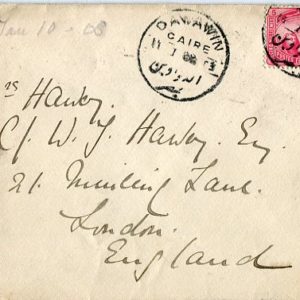 Jan 10 - 03
DAWAWIN
CAIRE
Mrs Hawkey.
C/. W. J. Hawkey. Esq.
21. Mincing Lane.
London.
England